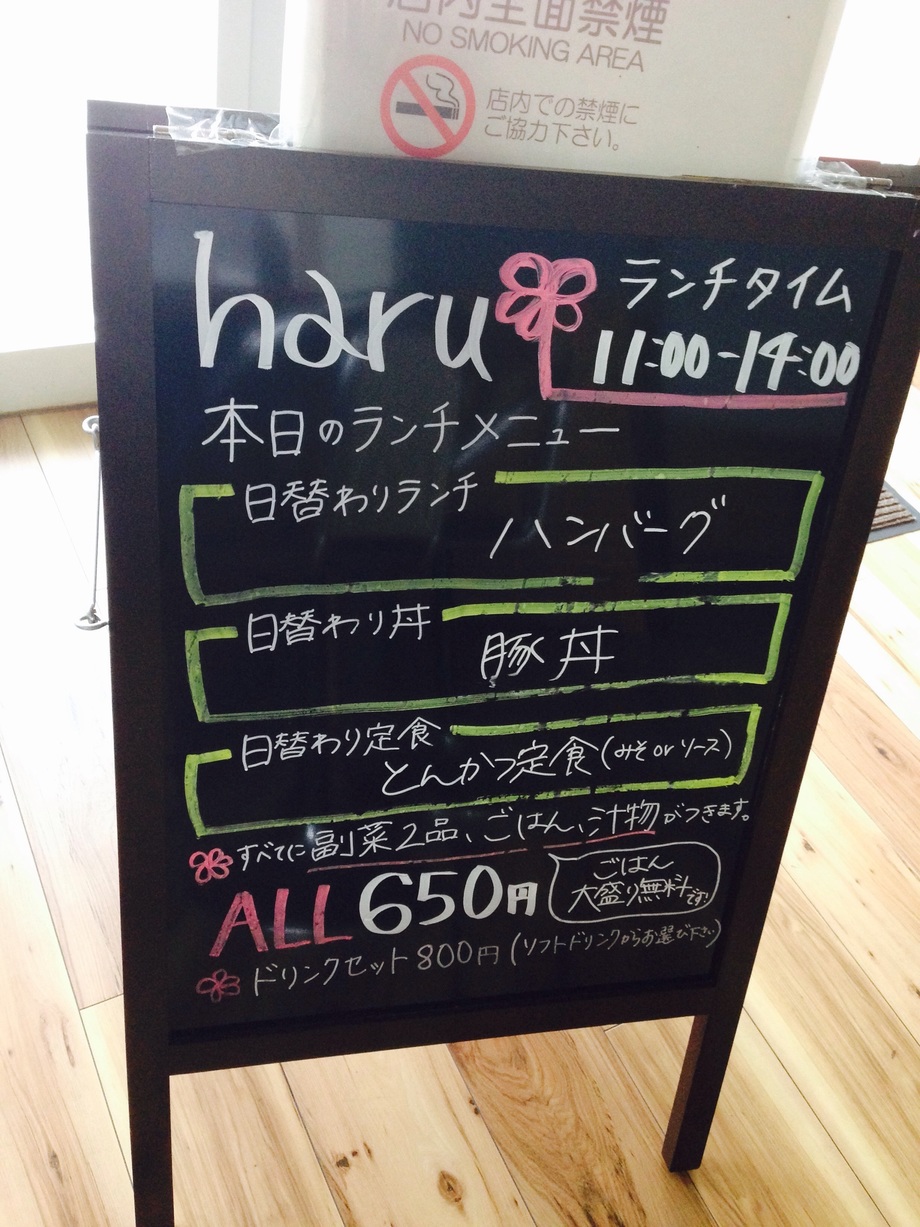 店内全面禁煙
NO SMOKING AREA
店内での禁煙に
ご協力下さい。
haru
ランチタイム
11:00-14:00
本日のランチメニュー
日替わりランチ
ハンバーグ
日替わり丼
豚丼
日替わり定食
とんかつ定食(みそorソース)
すべてに副菜2品、ごはん、汁物がつきます。
ALL 650円
ごはん
大盛り無料です!
ドリンクセット 800円 (ソフトドリンクからお選び下さい)